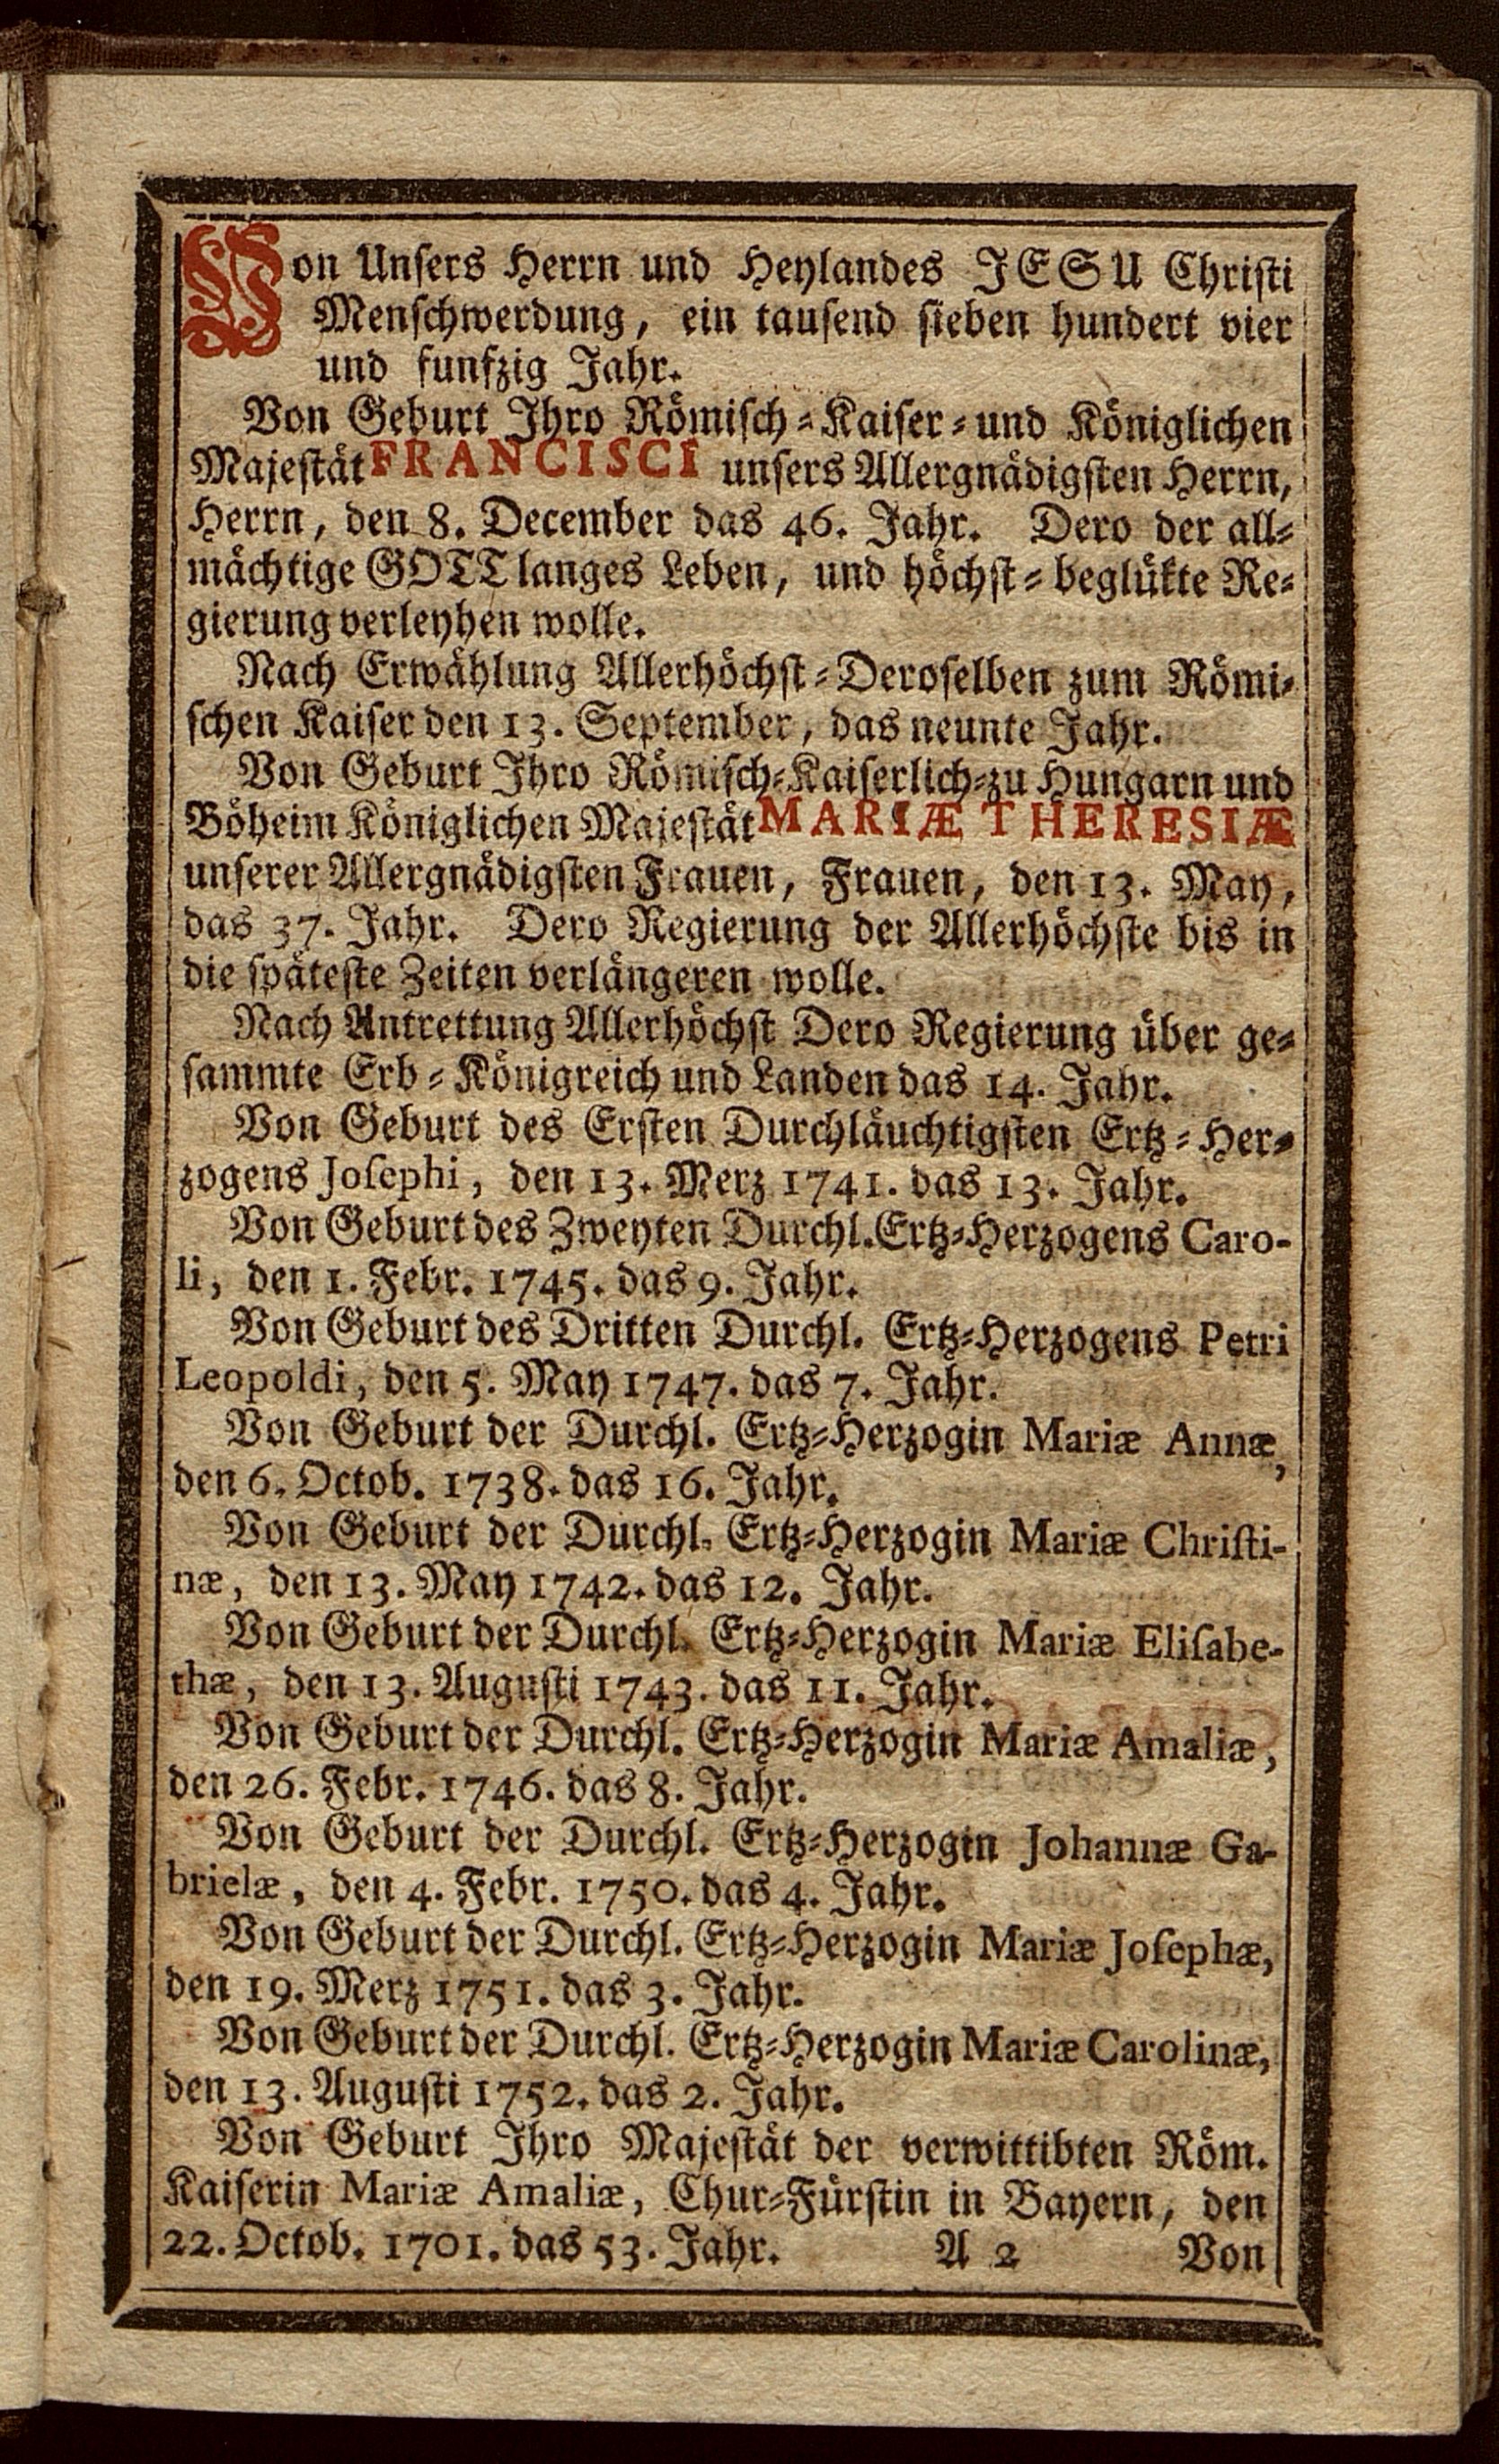 Von Unsers Herrn und Heylandes JESU Christi
Menschwerdung, ein tausend sieben hundert vier
und funfzig Jahr.
Von Geburt Ihro Römisch-Kaiser-und Königlichen
Majestät FRANCISCI unsers Allergnädigsten Herrn,
Herrn, den 8. December das 46. Jahr. Dero der all-
mächtige GOTT langes Leben, und höchst-beglükte Re-
gierung verleyhen wolle.
Nach Erwählung Allerhöchst-Deroselben zum Römi-
schen Kaiser den 13. September, das neunte Jahr.
Von Geburt Ihro Römisch-Kaiserlich-zu Hungarn und
Böheim Königlichen Majestät MARIÆ THERESIÆ
unserer Allergnädigsten Frauen, Frauen, den 13. May,
das 37. Jahr. Dero Regierung der Allerhöchste bis in
die späteste Zeiten verlängeren wolle.
Nach Antrettung Allerhöchst Dero Regierung über ge-
sammte Erb-Königreich und Landen das 14. Jahr.
Von Geburt des Ersten Durchläuchtigsten Ertz-Her-
zogens Josephi, den 13. Merz 1741. das 13. Jahr.
Von Geburt des Zweyten Durchl. Ertz-Herzogens Caro-
li, den 1. Febr. 1745. das 9. Jahr.
Von Geburt des Dritten Durchl. Ertz-Herzogens Petri
Leopoldi, den 5. May 1747. das 7. Jahr.
Von Geburt der Durchl. Ertz-Herzogin Mariæ Annæ,
den 6. Octob. 1738. das 16. Jahr.
Von Geburt der Durchl. Ertz-Herzogin Mariæ Christi-
næ, den 13. May 1742. das 12. Jahr.
Von Geburt der Durchl. Ertz-Herzogin Mariæ Elisabe-
thæ, den 13. Augusti 1743. das 11. Jahr.
Von Geburt der Durchl. Ertz-Herzogin Mariæ Amaliæ,
den 26. Febr. 1746. das 8. Jahr.
Von Geburt der Durchl. Ertz-Herzogin Johannæ Ga-
brielæ, den 4. Febr. 1750. das 4. Jahr.
Von Geburt der Durchl. Ertz-Herzogin Mariæ Josephæ,
den 19. Merz 1751. das 3. Jahr.
Von Geburt der Durchl. Ertz-Herzogin Mariæ Carolinæ,
den 13. Augusti 1752. das 2. Jahr.
Von Geburt Ihro Majestät der verwittibten Röm.
Kaiserin Mariæ Amaliæ, Chur-Fürstin in Bayern, den
22. Octob. 1701. das 53. Jahr. A 2 Von